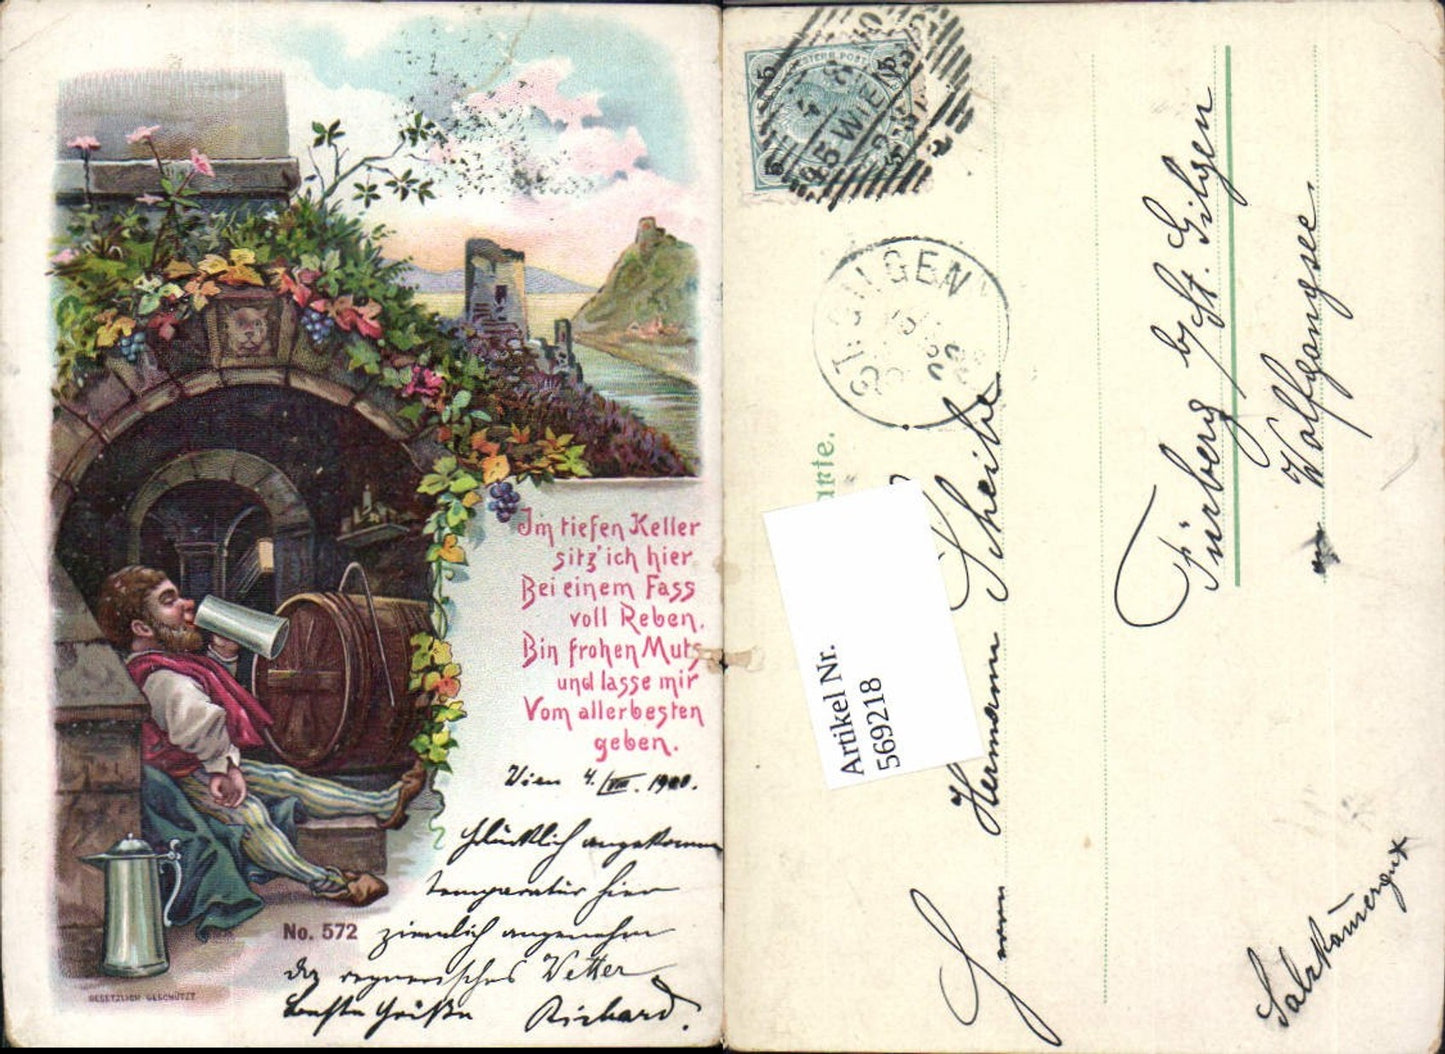 Im tiefen Keller
sitz' ich hier
Bei einem Fass
voll Reben,
Bin frohen Muts
und lasse mir
Vom allerbesten
geben.
Wien 4./VIII. 1900.
Glücklich angekommen
temperatür hier
ziemlich angenehm
da regnerisches Wetter
beste Grüße Richard.
No. 572
GESETZLICH GESCHÜTZT
5 5
WIEN
5 5
ST. GILGEN
arte.
Artikel Nr.
569218
Herrn Hermann Scheibe
Fürberg b/St. Gilgen
am Wolfgangsee
Salzkammergut